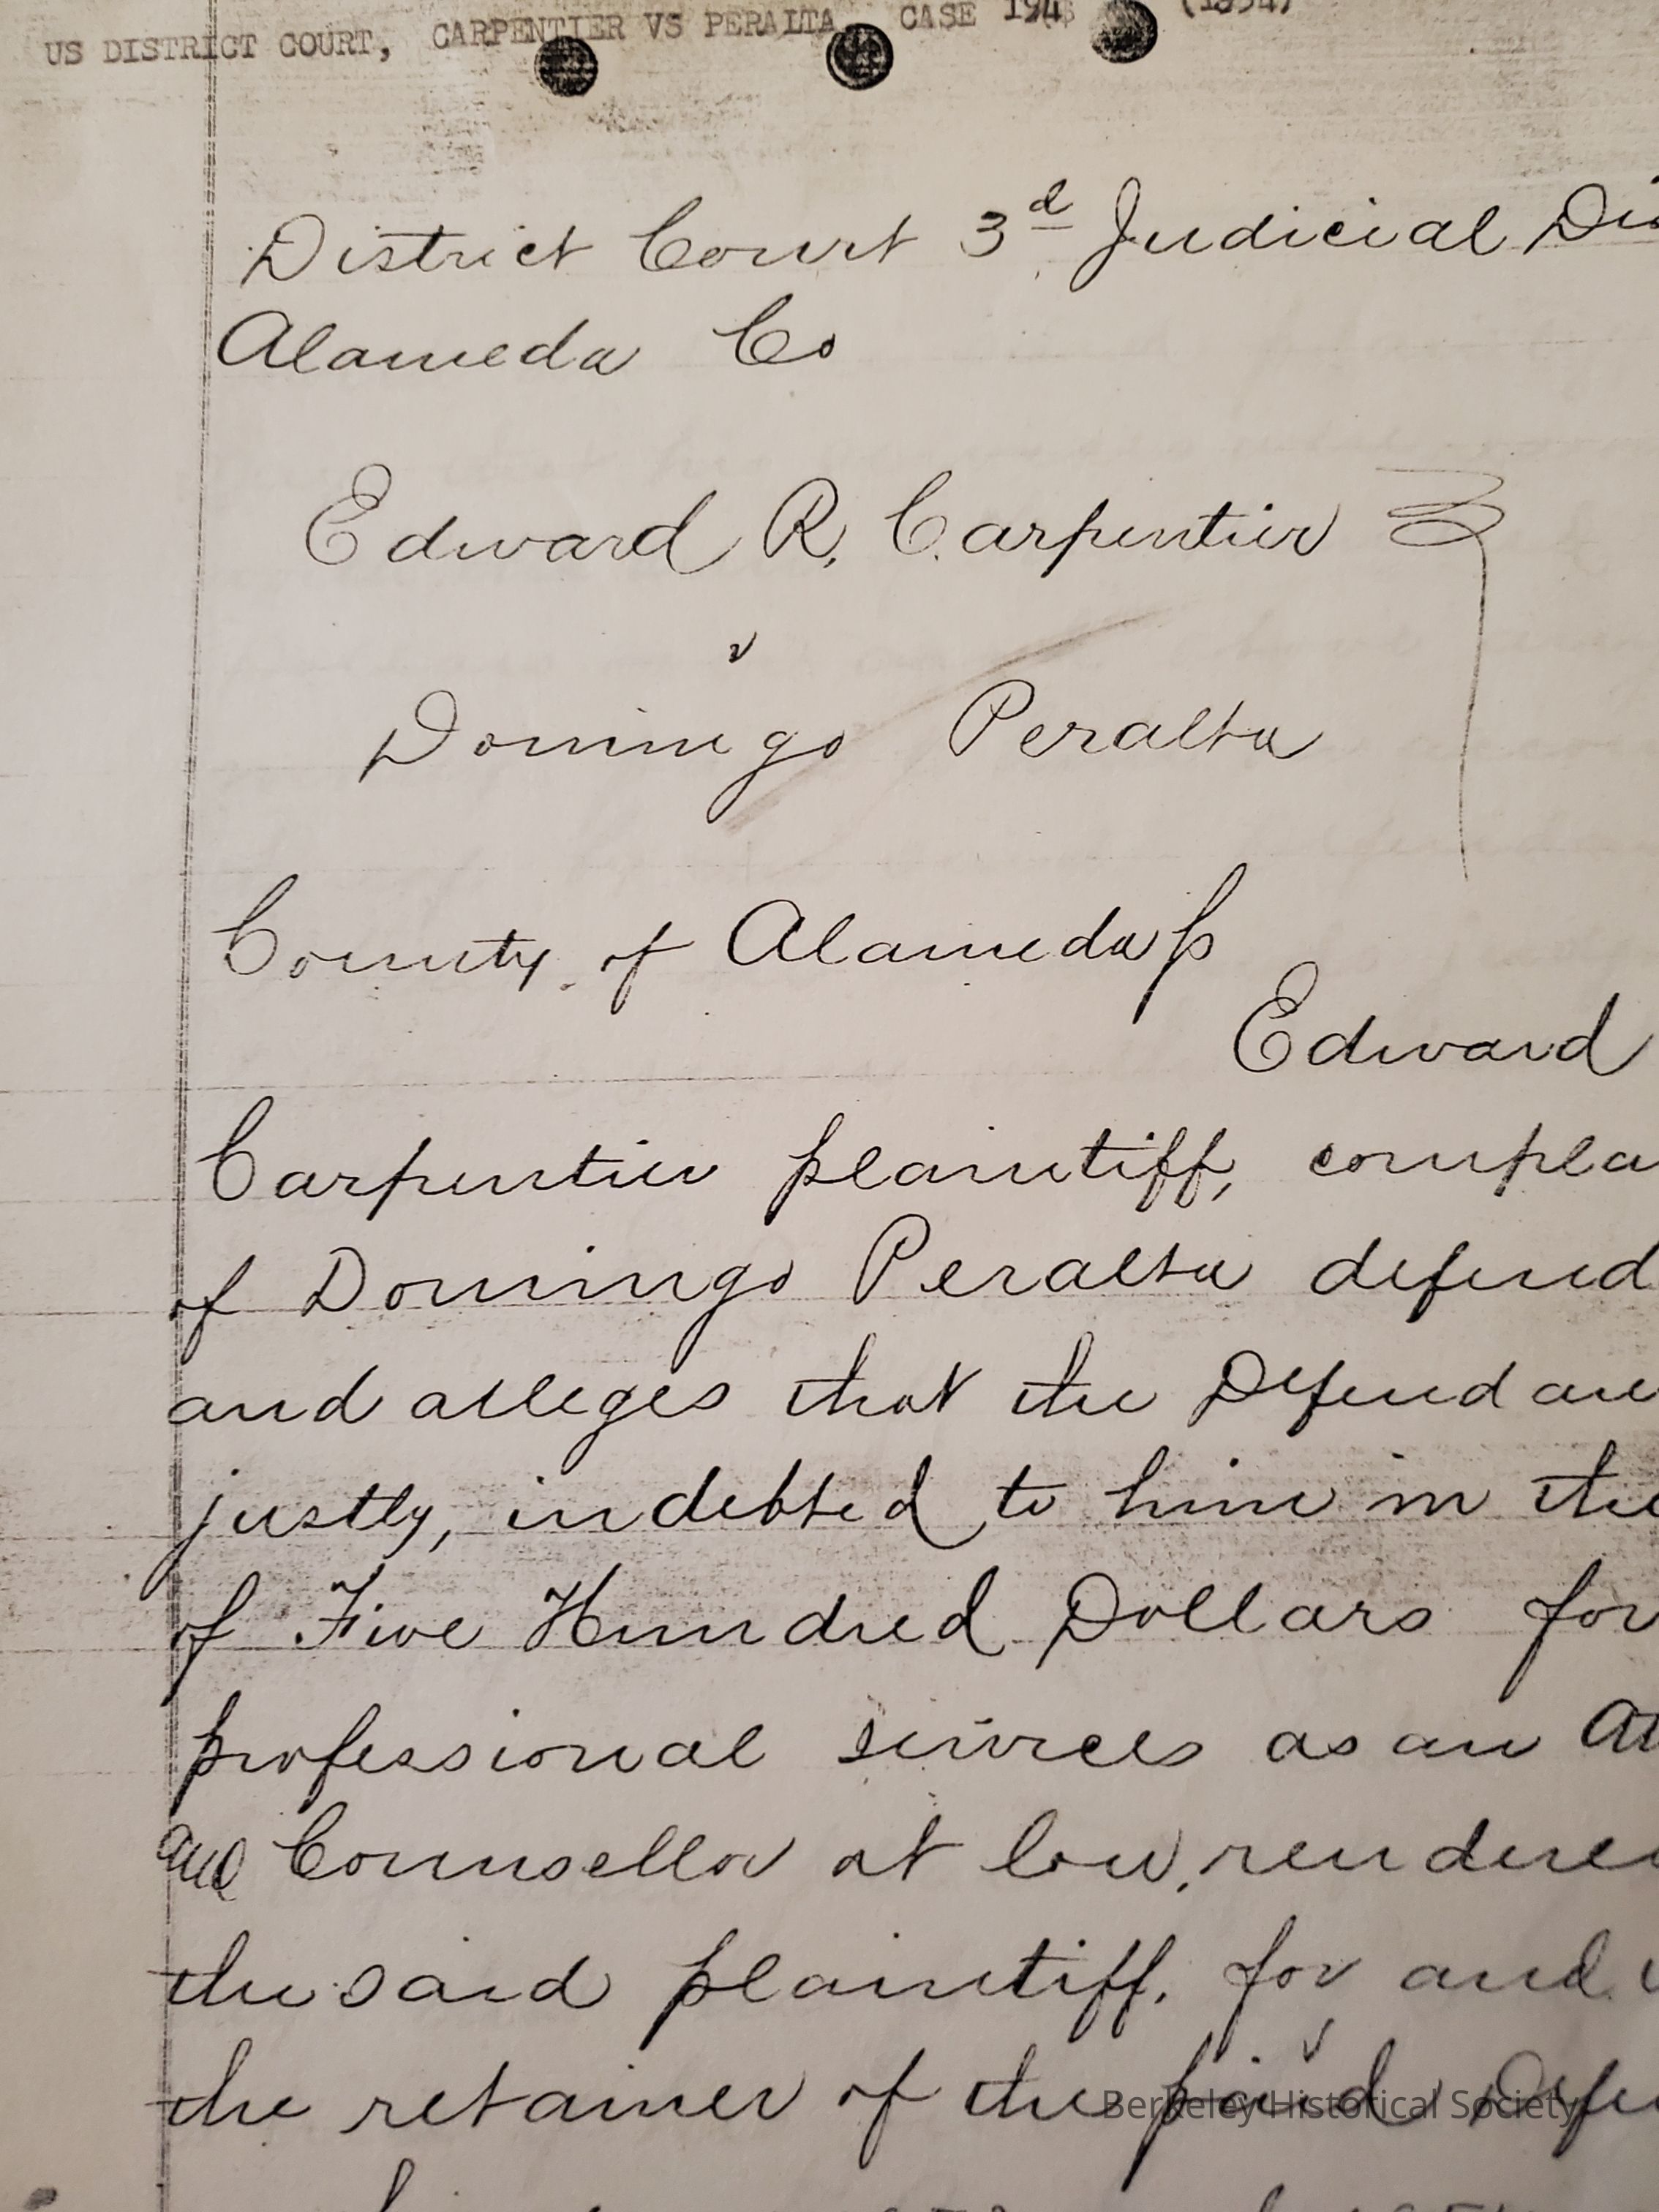 US DISTRICT COURT, CARPENTIER VS PERALTA CASE 194 (1854)
District Court 3d Judicial Dis
Alameda Co
Edward R. Carpentier
v
Domingo Peralta
County of Alameda ss
Edward
Carpentier plaintiff, compla
of Domingo Peralta defend
and alleges that the Defendan
justly, indebted to him in the
of Five Hundred Dollars for
professional services as an At
and Counsellor at law, rendere
the said plaintiff, for and
the retainer of the said Defe
Berkeley Historical Society